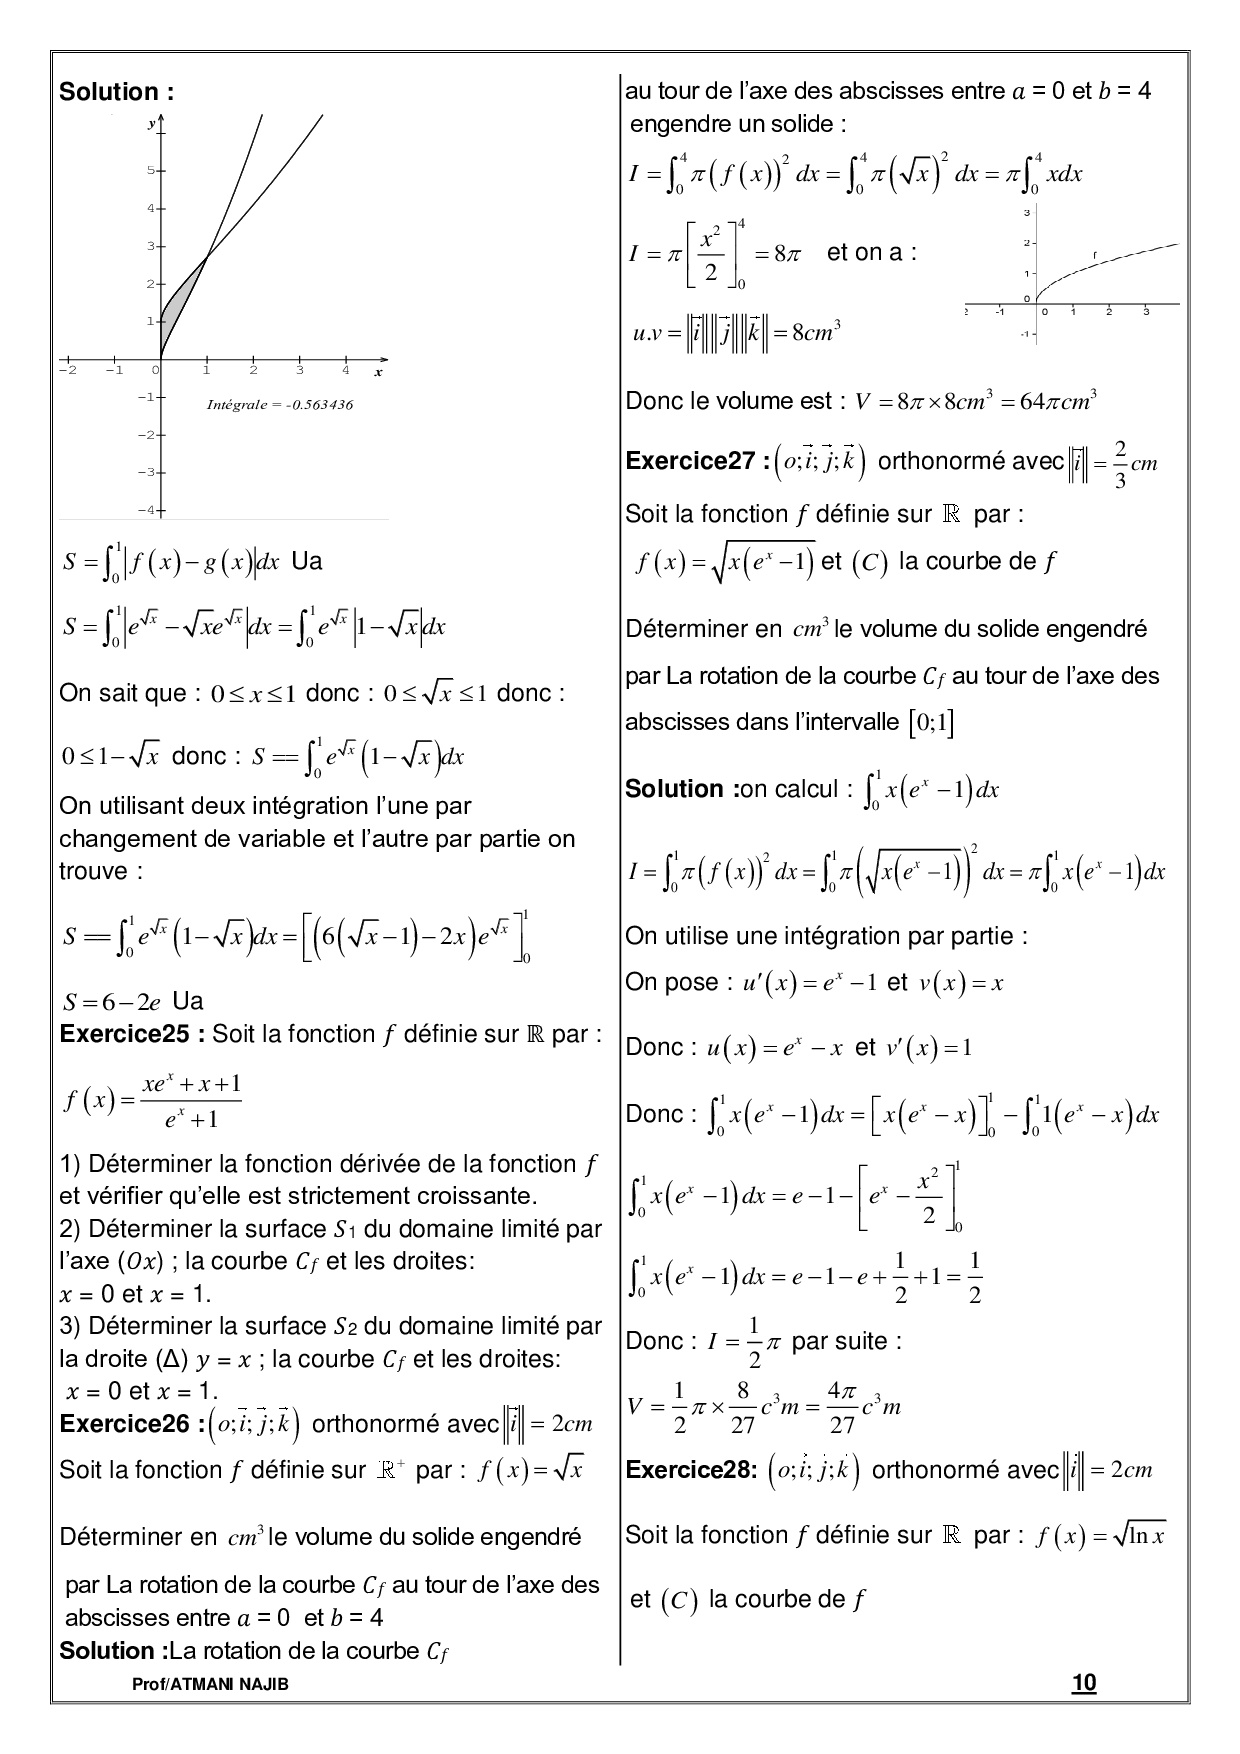 Solution :
y
5
4
3
2
1
-2 -1 0 1 2 3 4 x
-1
Intégrale = -0.563436
-2
-3
-4
S = ∫₀¹ |f(x) − g(x)| dx Ua
S = ∫₀¹ |e^√x − √x e^√x| dx = ∫₀¹ e^√x |1 − √x| dx
On sait que : 0 ≤ x ≤ 1 donc : 0 ≤ √x ≤ 1 donc :
0 ≤ 1 − √x donc : S == ∫₀¹ e^√x (1 − √x) dx
On utilisant deux intégration l’une par
changement de variable et l’autre par partie on
trouve :
S == ∫₀¹ e^√x (1 − √x) dx = [(6(√x − 1) − 2x) e^√x]₀¹
S = 6 − 2e Ua
Exercice25 : Soit la fonction f définie sur ℝ par :
f(x) = (xe^x + x + 1)/(e^x + 1)
1) Déterminer la fonction dérivée de la fonction f
et vérifier qu’elle est strictement croissante.
2) Déterminer la surface S1 du domaine limité par
l’axe (Ox) ; la courbe Cf et les droites:
x = 0 et x = 1.
3) Déterminer la surface S2 du domaine limité par
la droite (Δ) y = x ; la courbe Cf et les droites:
x = 0 et x = 1.
Exercice26 : (o; i⃗; j⃗; k⃗) orthonormé avec ‖i⃗‖ = 2cm
Soit la fonction f définie sur ℝ⁺ par : f(x) = √x
Déterminer en cm³ le volume du solide engendré
par La rotation de la courbe Cf au tour de l’axe des
abscisses entre a = 0 et b = 4
Solution :La rotation de la courbe Cf
au tour de l’axe des abscisses entre a = 0 et b = 4
engendre un solide :
I = ∫₀⁴ π(f(x))² dx = ∫₀⁴ π(√x)² dx = π∫₀⁴ xdx
I = π[x²/2]₀⁴ = 8π et on a :
3
2
1
0
2 -1 0 1 2 3
-1
f
u.v = ‖i⃗‖‖j⃗‖‖k⃗‖ = 8cm³
Donc le volume est : V = 8π × 8cm³ = 64πcm³
Exercice27 : (o; i⃗; j⃗; k⃗) orthonormé avec ‖i⃗‖ = 2/3 cm
Soit la fonction f définie sur ℝ par :
f(x) = √(x(e^x − 1)) et (C) la courbe de f
Déterminer en cm³ le volume du solide engendré
par La rotation de la courbe Cf au tour de l’axe des
abscisses dans l’intervalle [0;1]
Solution :on calcul : ∫₀¹ x(e^x − 1) dx
I = ∫₀¹ π(f(x))² dx = ∫₀¹ π(√(x(e^x − 1)))² dx = π∫₀¹ x(e^x − 1) dx
On utilise une intégration par partie :
On pose : u′(x) = e^x − 1 et v(x) = x
Donc : u(x) = e^x − x et v′(x) = 1
Donc : ∫₀¹ x(e^x − 1) dx = [x(e^x − x)]₀¹ − ∫₀¹ 1(e^x − x) dx
∫₀¹ x(e^x − 1) dx = e − 1 − [e^x − x²/2]₀¹
∫₀¹ x(e^x − 1) dx = e − 1 − e + 1/2 + 1 = 1/2
Donc : I = 1/2 π par suite :
V = 1/2 π × 8/27 c³m = 4π/27 c³m
Exercice28: (o; i⃗; j⃗; k⃗) orthonormé avec ‖i⃗‖ = 2cm
Soit la fonction f définie sur ℝ par : f(x) = √(ln x)
et (C) la courbe de f
Prof/ATMANI NAJIB
10